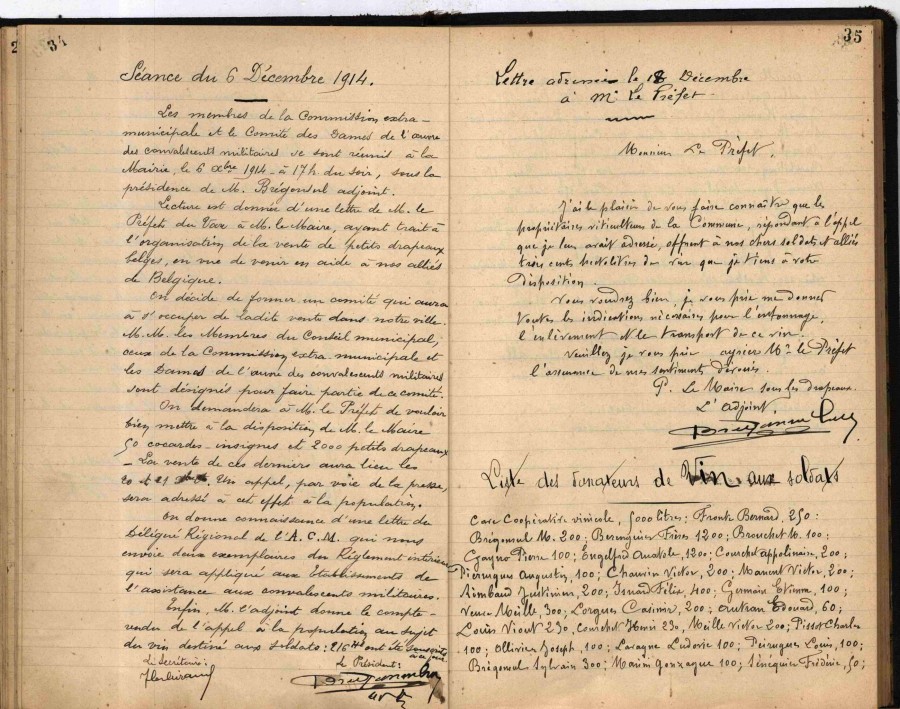 34
Séance du 6 Décembre 1914.
Les membres de la Commission extra-
municipale et le Comité des Dames de l'œuvre
des convalescents militaires se sont réunis à la
Mairie, le 6 Xbre 1914 à 17h. du soir, sous la
présidence de M. Brégonsul adjoint.
Lecture est donnée d'une lettre de M. le
Préfet du Var à M. le Maire, ayant trait à
l'organisation de la vente de petits drapeaux
belges, en vue de venir en aide à nos alliés
de Belgique.
On décide de former un comité qui aura
à s'occuper de ladite vente dans notre ville.
M.M. les Membres du Conseil municipal,
ceux de la Commission extra-municipale et
les Dames de l'œuvre des convalescents militaires
sont désignés pour faire partie de ce comité.
On demandera à M. le Préfet de vouloir
bien mettre à la disposition de M. le Maire
50 cocardes-insignes et 2000 petits drapeaux
- La vente de ces derniers aura lieu les
20 et 21 Un appel, par voie de la presse,
sera adressé à cet effet à la population.
On donne connaissance d'une lettre du
Délégué Régional de l'A.C.M. qui nous
envoie deux exemplaires du Réglement intérieur
qui sera appliqué aux Etablissements de
l'assistance aux convalescents militaires.
Enfin, M. l'adjoint donne le compte-
rendu de l'appel à la population au sujet
du vin destiné aux soldats: 216 Hl ont été souscrits
à ce jour
Le Secrétaire: Le Président:
35
Lettre adressée le 18 Décembre
à Mr Le Préfet
Monsieur Le Préfet,
J'ai le plaisir de vous faire connaître que les
propriétaires viticulteurs de la Commune, répondant à l'appel
que je leur avait adressé, offrent à nos chers soldats et alliés
trois cents hectolitres de vin que je tiens à votre
Disposition.
Vous voudrez bien, je vous prie me donner
toutes les indications nécessaires pour l'entonnage,
l'enlèvement et le transport de ce vin.
Veuillez je vous prie agréer Mr le Préfet
l'assurance de mes sentiments dévoués.
P. Le Maire sous les drapeaux
L'adjoint,
Liste des donateurs de Vin aux soldats
Cave Coopérative vinicole, 5000 litres; Frank Bernard, 250:
Brégonsul M. 200; Berenguier Frères 1200; Brouchet M. 100:
Gayno Pierre 100; Engelfred Anatole, 1200; Courchet appolinaire, 200;
Pierrugues Augustin, 100; Chauvin Victor, 200; Manent Victor, 200;
Rimbaud Justinien, 200; Isnard Félix, 400; Germain Etienne, 100;
Veuve Meille, 300; Lorgues Casimir, 200; Autran Edouard, 60;
Louis Viout 250, Courchet Henri 250, Meille Victor 200; Pissot Charles
100; Ollivier Joseph, 100; Lavagne Ludovic 100; Peirugues Louis, 100;
Brégonsul Sylvain 300; Marini Gonzague 100; Sénéquier Frédéric, 50;